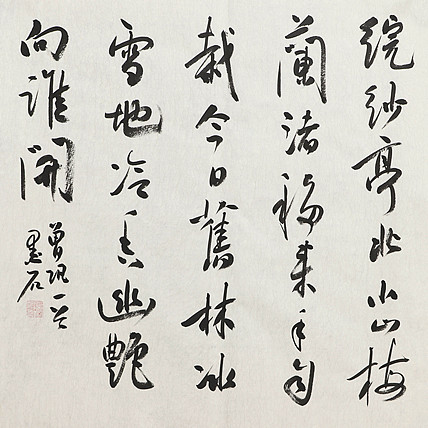 綄紗亭北小山梅
蘭渚移來手自
栽今日舊林冰
雪地冷香幽艷
向誰開
曾巩一首
墨石